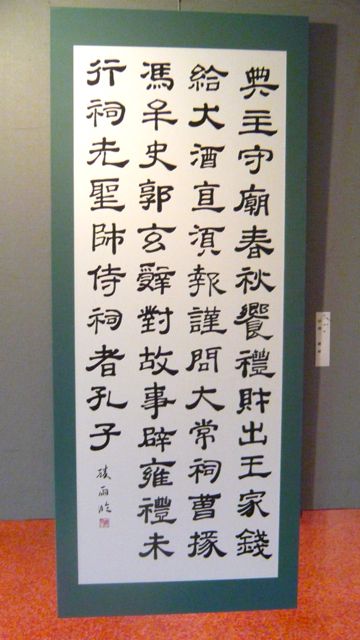 典主守廟春秋饗禮財出王家錢
給犬酒直須報謹問大常祠曹掾
馮牟史郭玄辭對故事辟雍禮未
行祠先聖師侍祠者孔子
雨臨